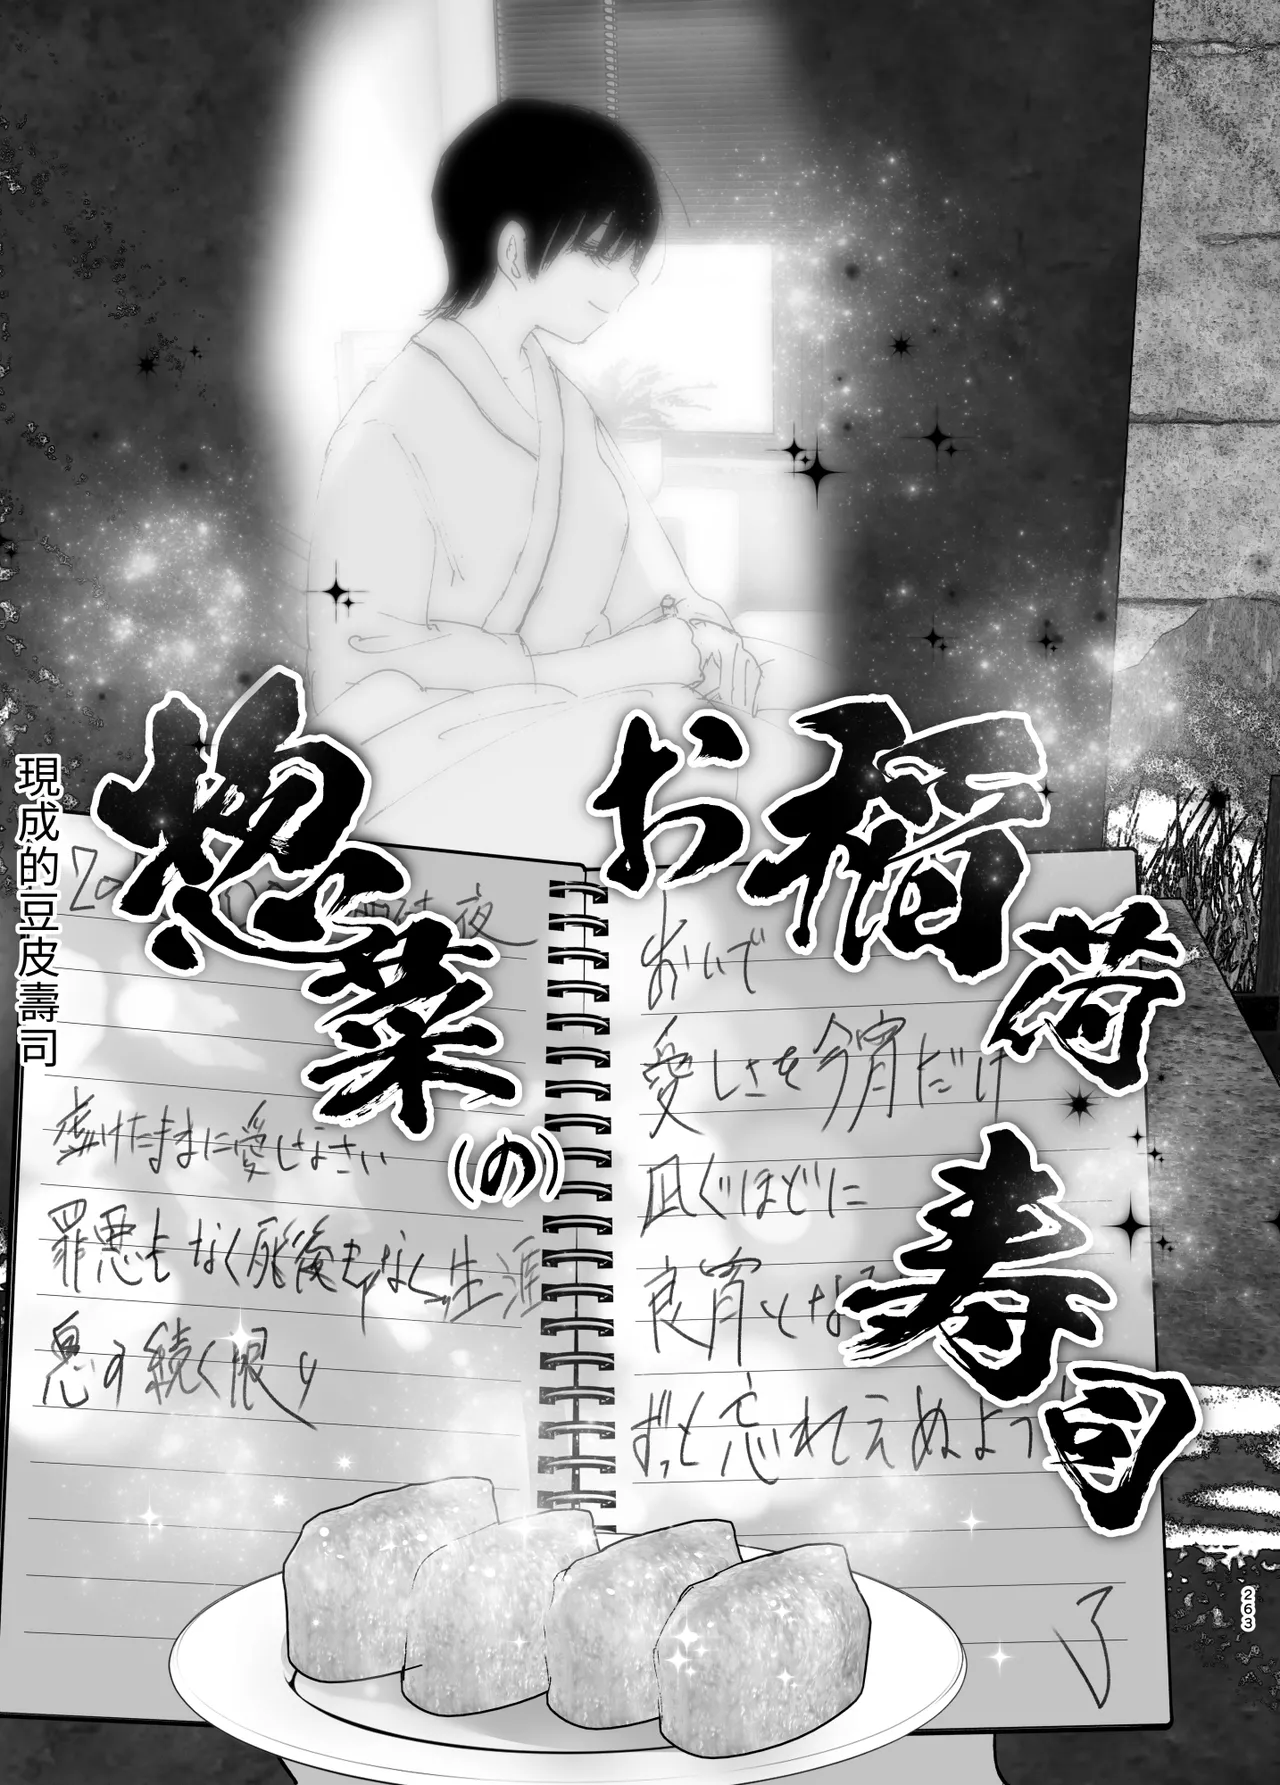 惣菜(の)
お稲荷寿司
現成的豆皮壽司
夜
虚けたままに愛しなさい
罪悪もなく死後もなく生涯
息の続く限り
おいで
愛しさを今宵だけ
凪ぐほどに
良宵とな
ずっと忘れてえぬよう
了
263